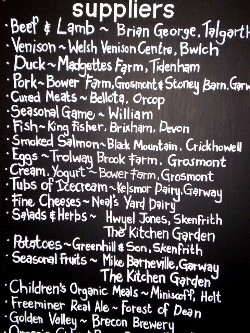 suppliers
· Beef & Lamb ~ Brian George, Talgarth
· Venison ~ Welsh Venison Centre, Bwlch
· Duck ~ Madgetts Farm, Tidenham
· Pork ~ Bower Farm, Grosmont & Stoney Barn, Garw
· Cured Meats ~ Bellota, Orcop
· Seasonal Game ~ William
· Fish ~ King fisher, Brixham, Devon
· Smoked Salmon ~ Black Mountain, Crickhowell
· Eggs ~ Trolway Brook Farm, Grosmont
· Cream, Yogurt ~ Bower Farm, Grosmont
· Tubs of Icecream ~ Kelsmor Dairy, Garway
· Fine Cheeses ~ Neal's Yard Dairy
· Salads & Herbs ~ Hwyel Jones, Skenfrith
The Kitchen Garden
· Potatoes ~ Greenhill & Son, Skenfrith
· Seasonal Fruits ~ Mike Barneville, Garway
The Kitchen Garden
· Children's Organic Meals ~ Miniscoff, Holt
· Freeminer Real Ale ~ Forest of Dean
· Golden Valley ~ Brecon Brewery